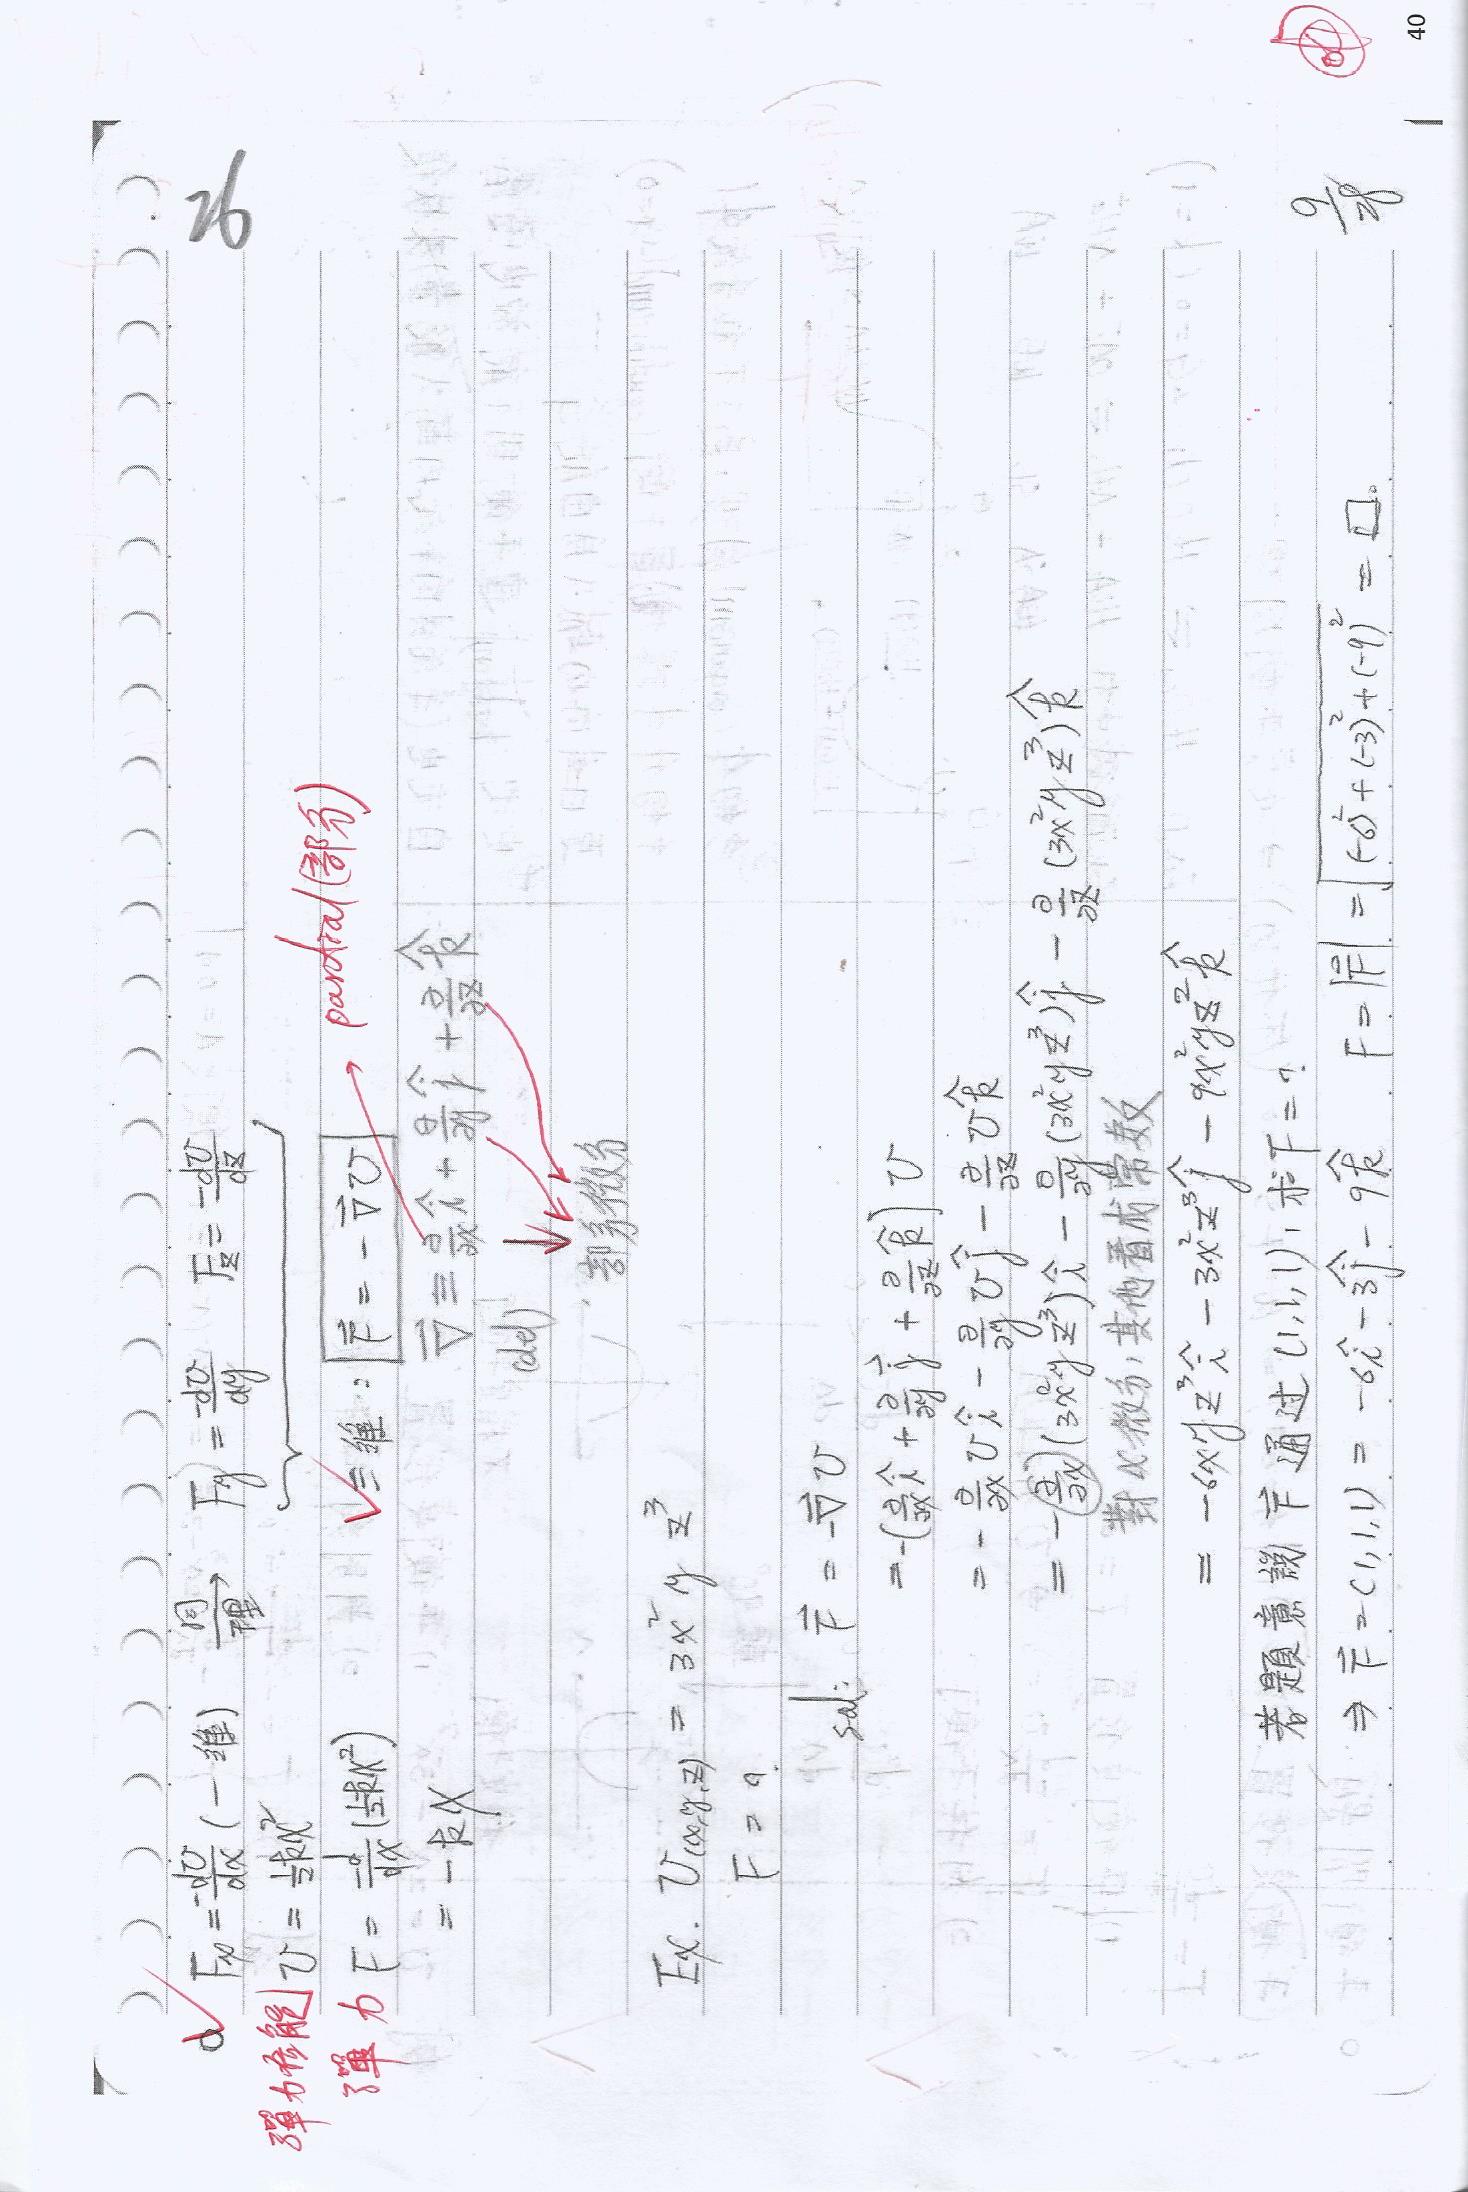 40
26
F_x = -dU/dx (一維) 同理→ F_y = -dU/dy F_z = -dU/dz
彈力位能 U = ½kx²
彈力 F = -d/dx (½kx²) 三維: F⃗ = -∇⃗U partial (部分)
= -kx ∇⃗ ≡ ∂/∂x î + ∂/∂y ĵ + ∂/∂z k̂
(del)
部分微分
Ex. U(x,y,z) = 3x²yz³
F = ?
sol: F⃗ = -∇⃗U
= -(∂/∂x î + ∂/∂y ĵ + ∂/∂z k̂) U
= -∂/∂x U î - ∂/∂y U ĵ - ∂/∂z U k̂
= -(∂/∂x)(3x²yz³) î - ∂/∂y (3x²yz³) ĵ - ∂/∂z (3x²yz³) k̂
對x微分,其他看成常数
= -6xyz³ î - 3x²z³ ĵ - 9x²yz² k̂
若題意説 F⃗ 通过 (1,1,1), 求F=?
⇒ F⃗ = (1,1,1) = -6î - 3ĵ - 9k̂ F = |F⃗| = √((-6)² + (-3)² + (-9)²) = □。